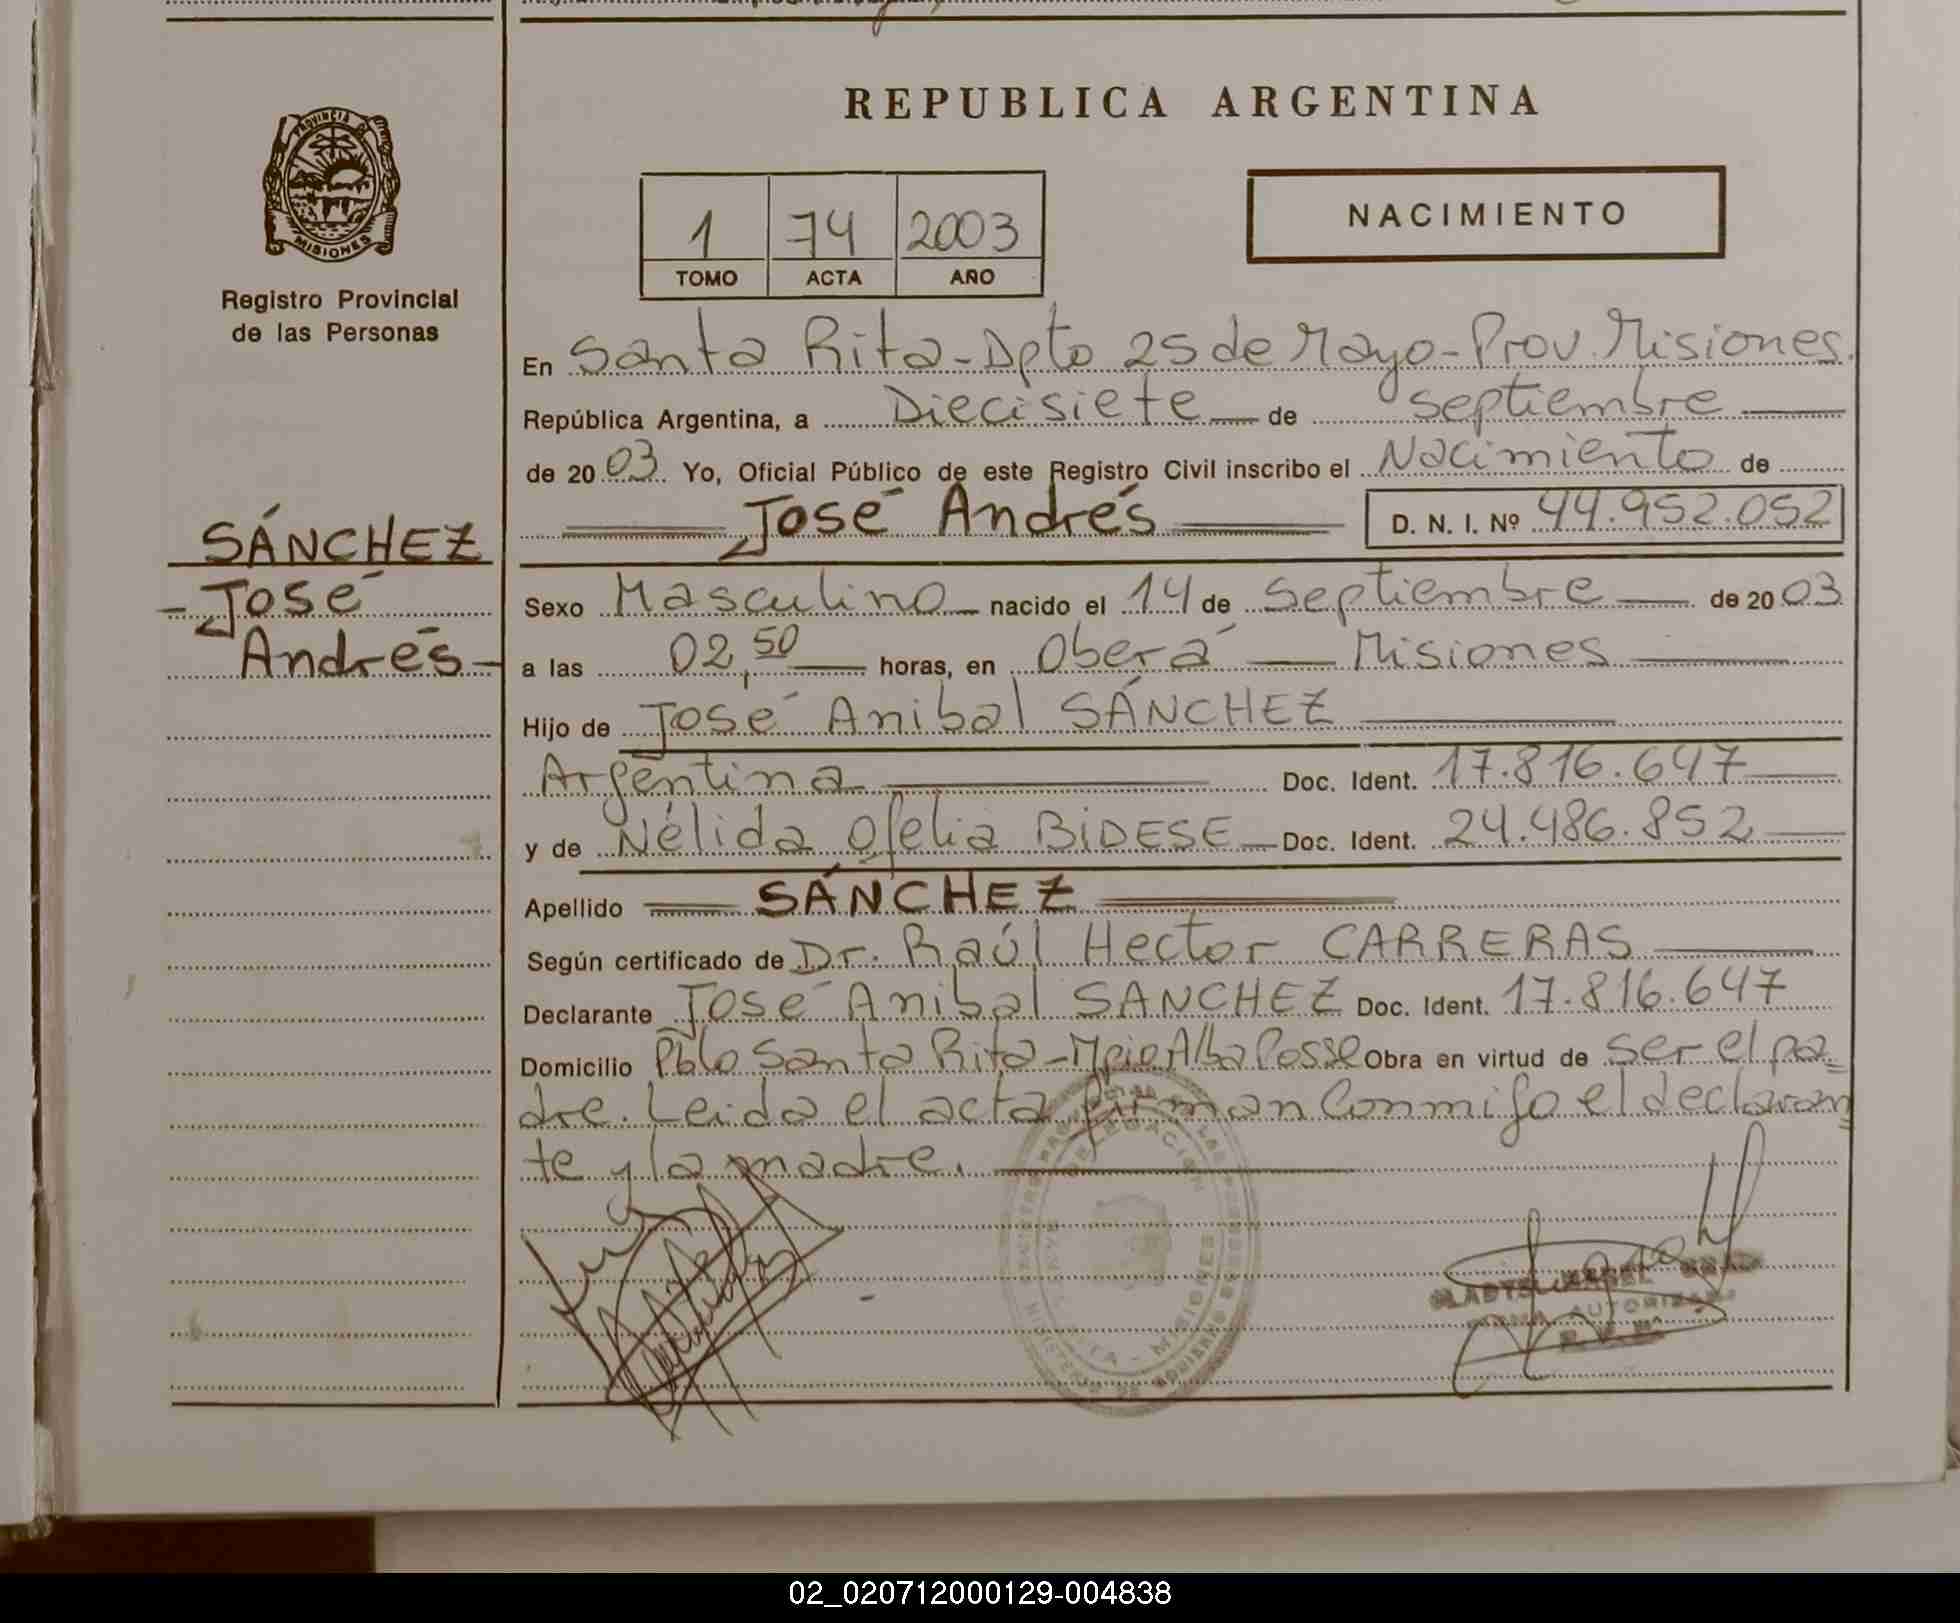 REPUBLICA ARGENTINA
PROVINCIA DE
MISIONES
Registro Provincial
de las Personas
1 74 2003
TOMO ACTA AÑO
NACIMIENTO
En Santa Rita - Dpto 25 de Mayo - Prov. Misiones.
República Argentina, a Diecisiete de septiembre
de 2003 Yo, Oficial Público de este Registro Civil inscribo el Nacimiento de
José Andrés D. N. I. Nº 44.952.052
SÁNCHEZ
José
Andrés
Sexo Masculino nacido el 14 de Septiembre de 2003
a las 02,50 horas, en Oberá Misiones
Hijo de José Anibal SÁNCHEZ
Argentina Doc. Ident. 17.816.647
y de Nélida Ofelia BIDESE Doc. Ident. 24.486.852
Apellido SÁNCHEZ
Según certificado de Dr. Raúl Hector CARRERAS
Declarante José Anibal SANCHEZ Doc. Ident. 17.816.647
Domicilio Pblo Santa Rita - Mpio Alba Posse Obra en virtud de ser el pa
dre. Leida el acta firman Conmigo el declaran
te y la madre.
DELEGACION
MISIONES
AUTORIZADA
02_020712000129-004838